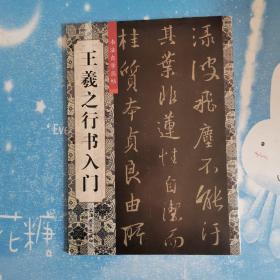 王羲之行书入门
渌波飛塵不能污
其葉非蓮性自潔而
桂質本貞良由所
Eve
糖